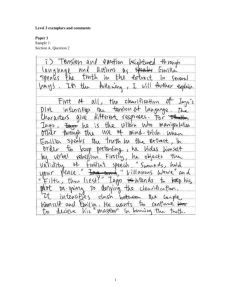 Level 3 exemplars and comments
Paper 1
Sample 1:
Section A, Question 2
i) Tension and emotion heightened through
language and actions by Emilia
speaks the truth in the extract in several
ways. In the following, I will further explain
First of all, the clarification of Iago's
plot the tension of language. The
characters give different responses. For
Iago, he is the villain who manipulates
through the use of mind trick when
Emilia speaks the truth in the extract, in
order to keep pretending, he hides himself
by verbal rebellion. Firstly, he objects the
validity of Emilia's speech. "Zounds, hold
your peace." "Villainous whore" and
"Filth, thou liest!" Iago intends to keep his
plot on-going so denying the clarification.
It intensifies clash between the couple,
himself and Emilia. He wants to continue
to deceive his "master" in knowing the truth.
1